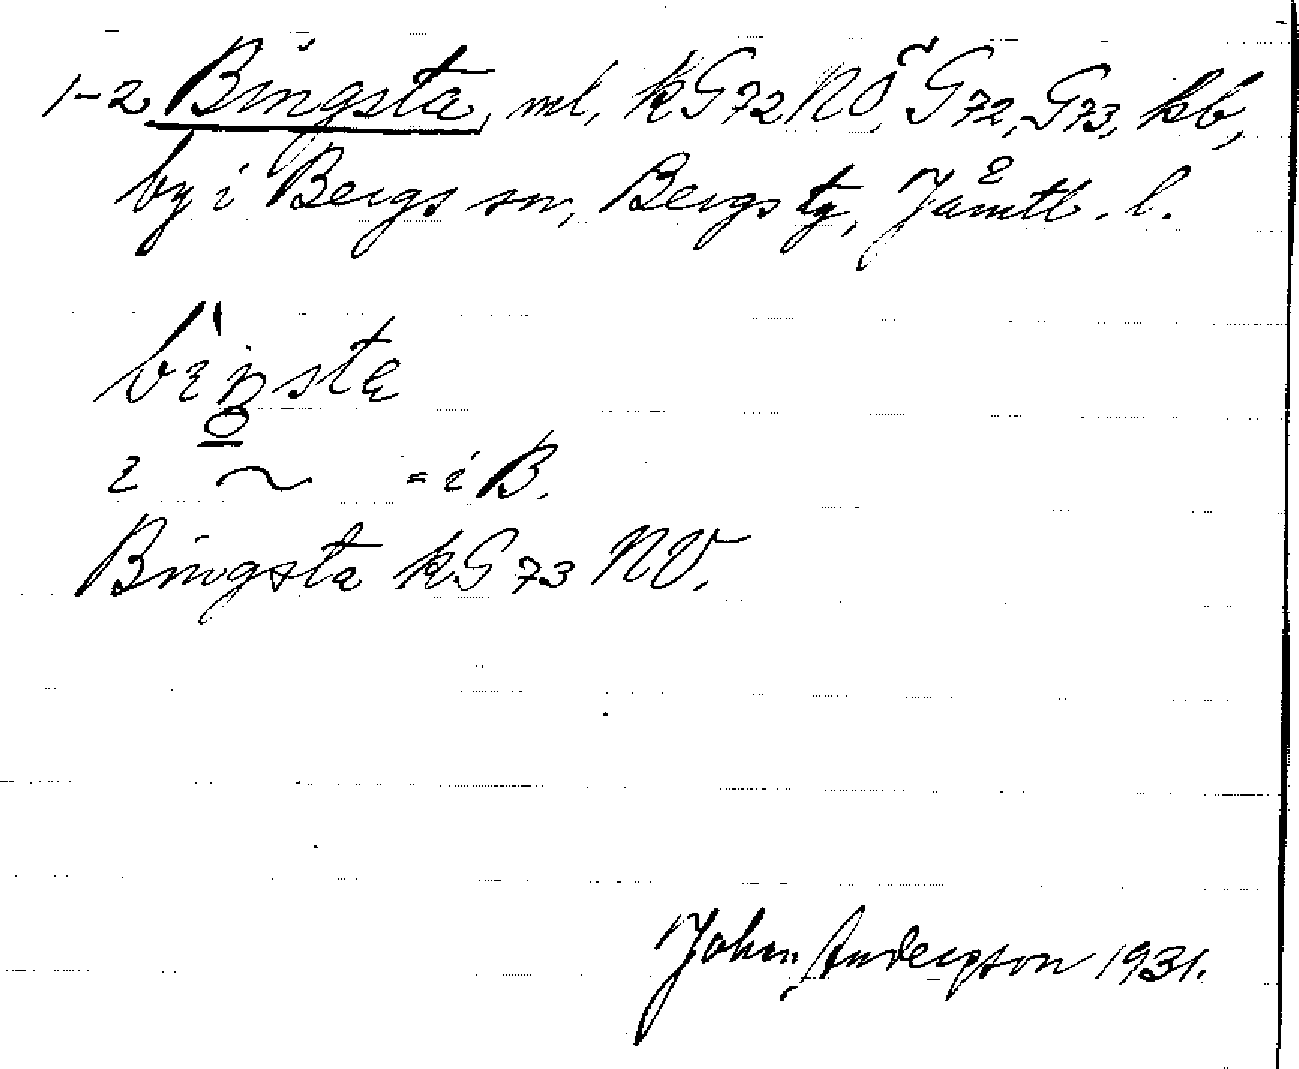 1-2 Bingsta, ml, kG72NÖ, G72, G73, kb,
by i Bergs sn, Bergs tg, Jämtl. l.
i ~ = i B.
Bingsta kG73 NV.
John Andersson 1931.